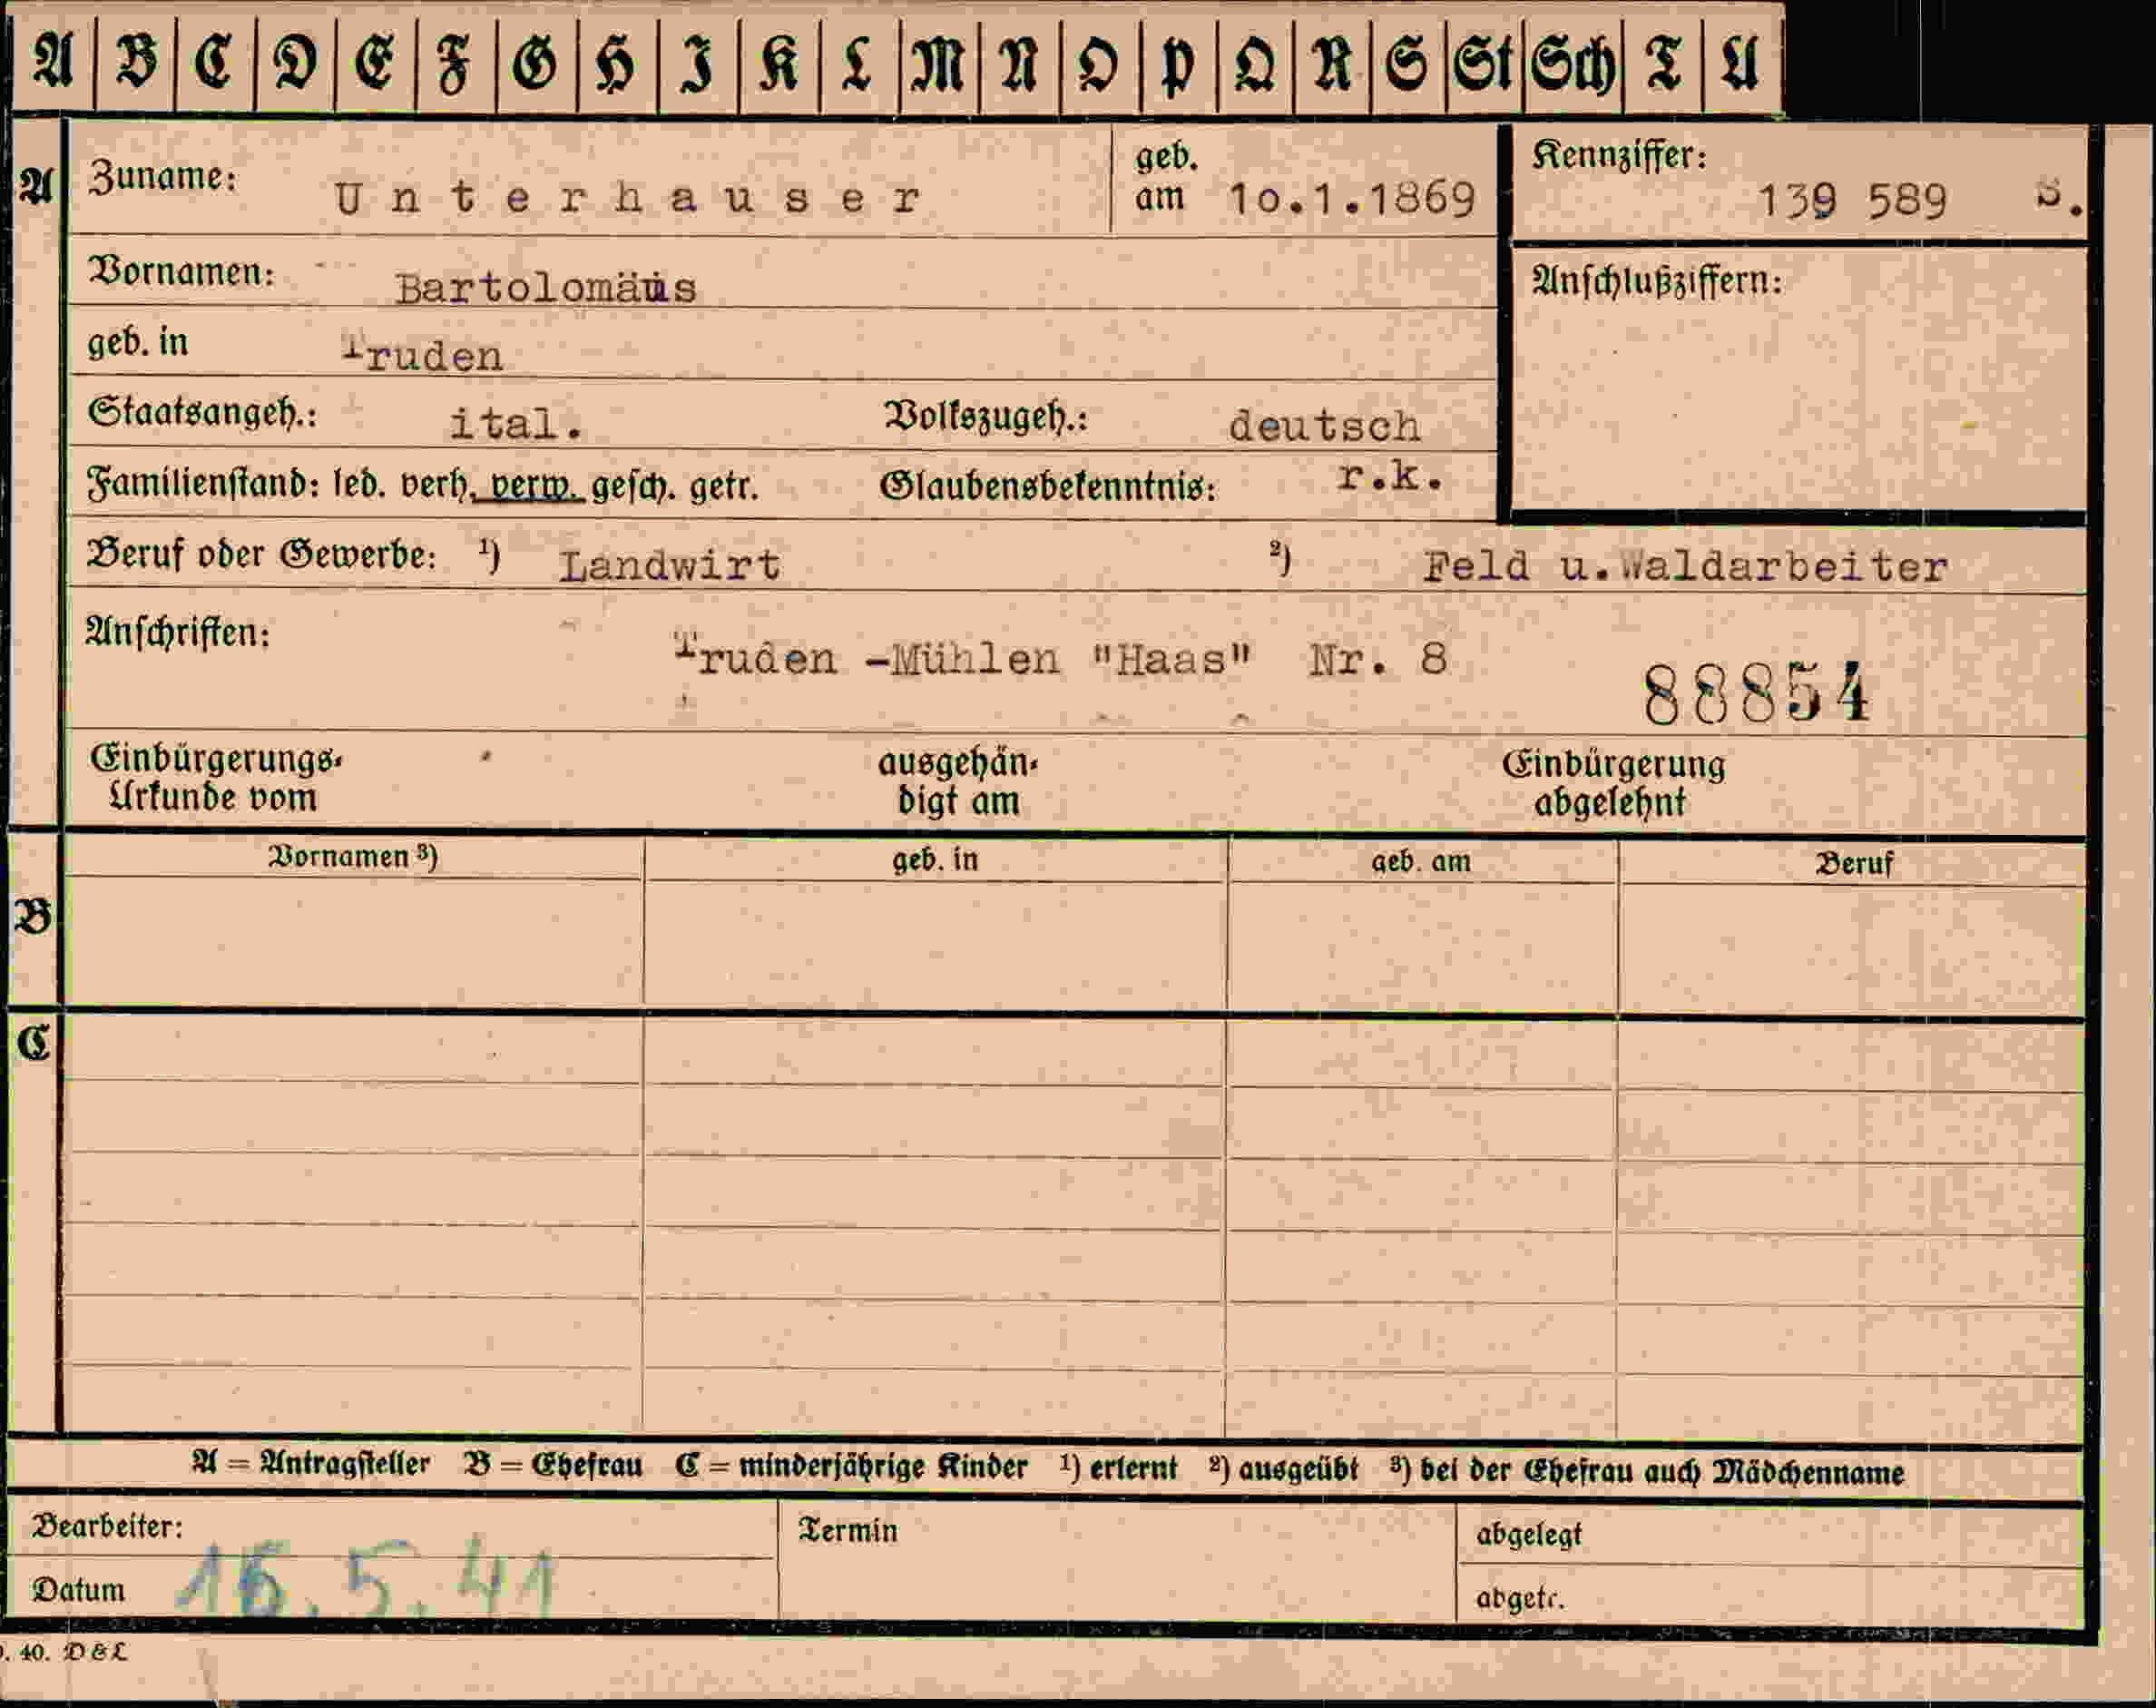 A B C D E F G H I K L M N O P Q R S St Sch T U
A Zuname: Unterhauser geb. am 10.1.1869 Kennziffer: 139 589 S.
Vornamen: Bartolomäus Anschlußziffern:
geb. in Truden
Staatsangeh.: ital. Volkszugeh.: deutsch
Familienstand: led. verh. verw. gesch. getr. Glaubensbekenntnis: r.k.
Beruf oder Gewerbe: ¹) Landwirt ²) Feld u.Waldarbeiter
Anschriften: Truden -Mühlen "Haas" Nr. 8
88854
Einbürgerungs- ausgehän- Einbürgerung
Urkunde vom digt am abgelehnt
Vornamen ³) geb. in geb. am Beruf
B
C
A = Antragsteller B = Ehefrau C = minderjährige Kinder ¹) erlernt ²) ausgeübt ³) bei der Ehefrau auch Mädchenname
Bearbeiter: Termin abgelegt
Datum 16.5.41 abgetr.
40. D & L